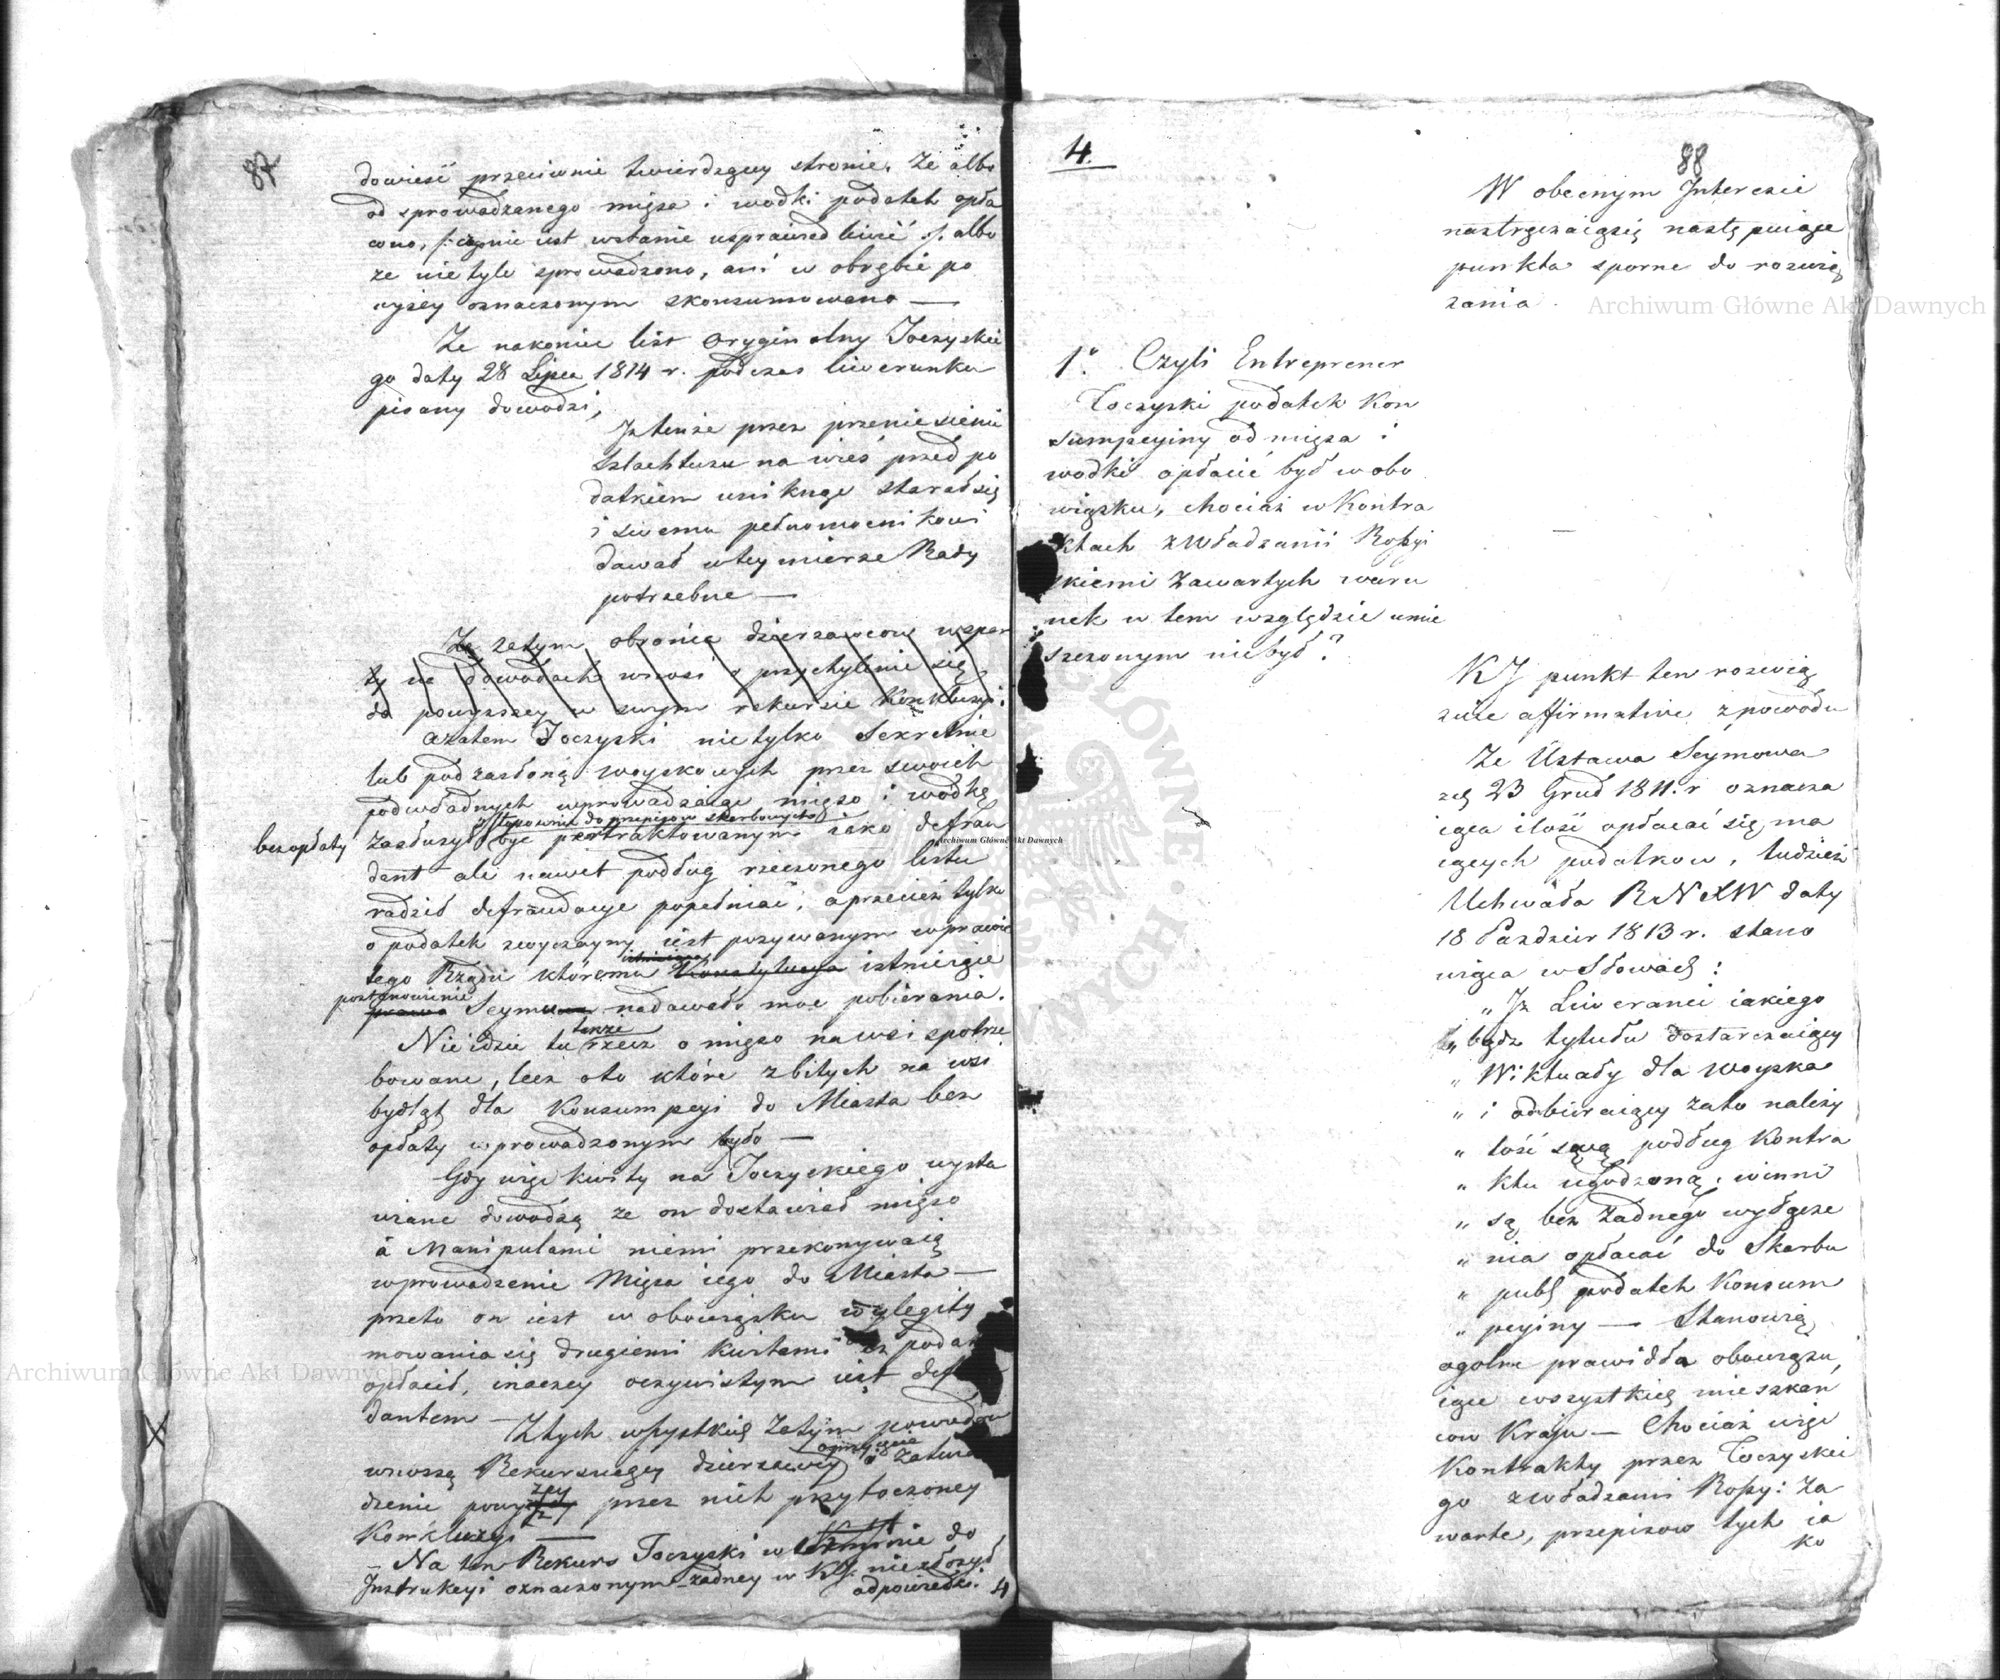 87
dowieść przeciwnie twierdzący stronie, że albo
od sprowadzanego mięsa i wodki podatek opła
cono, albo
że nie tyle sprowadzono, ani w obrębie po
wyżey oznaczonym skonsumowano —
Że nakoniec list oryginalny Toczyskie
go daty 28 Lipca 1814 r. podczas liwerunku
pisany dowodzi,
Iż tenże przez przeniesienie
Szlachtuzu na wieś przed po
datkiem uniknąć starał się
i swemu pełnomocnikowi
dawał w tey mierze Rady
potrzebne —
Że zatym obrońca dzierzawcow wspar
ty na dowodach wnosi o przychylenie się
do powyższey w swym rekursie Konkluzyi:
a zatem Toczyski nietylko Sekretnie
lub pod zasłoną woyskowych przez swoich
podwładnych wprowadzaiąc mięso i wodkę
stosownie do przepisow skarbowych
bez opłaty zasłużył być traktowanym iako defrau
dant ale nawet podług rzeczonego listu
radził defraudacye popełniać, a przecież tylko
o podatek zwyczayny iest pozywanym wprawie
tego Rządu któremu Konstytucya istnieiące
postanowienie
prawo Seymu nadawało moc pobierania.
także
Nie idzie tu rzecz o mięso na wsi spotrze
bowane, lecz o to które z bitych na wsi
bydląt dla Konsumpcyi do Miasta bez
opłaty wprowadzonym było —
Gdy więc kwity na Toczyskiego wysta
wione dowodzą że on dostawiał mięso
a Manipulanci niemi przekonywaią
wprowadzenie Mięsa iego do Miasta —
przeto on iest w obowiązku wylegity
mowania się drugiemi kwitami że podatek
opłacił, inaczey oczywistym iest
dantem — Z tych wszystkich zatym powodow
wnoszą Rekursuiący dzierzawcy o
dzenie przez nich przytoczoney
Konkluzyi —
— Na ten Rekurs Toczyski w terminie do
Instrukcyi oznaczonym żadney w KJ. nie złożył
odpowiedzi. 4
4.
88
W obecnym Interesie
nastręczaią się następuiące
punkta sporne do rozwią
zania.
1° Czyli Entreprener
Toczyski podatek Kon
sumpcyiny od mięsa i
wodki opłacić był w obo
wiązku, chociaż w Kontra
ktach z Władzami Rossyi
skiemi zawartych waru
nek w tem względzie umie
szczonym nie był?
KJ punkt ten rozwią
zuie affirmative z powodu
Że Ustawa Seymowa
z 23 Grud 1811. r oznacza
iąca ilość opłacać się ma
iących podatkow, tudzież
Uchwała RNXW daty
18 Pazdzier 1813 r. stano
wiąca w Słowach:
„Iż Liweranci iakiego
„ bądz tytułu dostarczaiący
„ Wiktuały dla woyska
„ i odbieraiący za to należy
„ tość swą podług Kontra
„ ktu ugodzoną, winni
„ są bez żadnego wyłącze
„ nia opłacać do Skarbu
„ publ podatek Konsum
„ pcyiny — Stanowią
ogolne prawidła obowiązu
iące wszystkich mieszkań
cow Kraju — Chociaż więc
Kontrakty przez Toczyskie
go z władzami Rossy: za
warte, przepisow tych ia
ko
Archiwum Główne Akt Dawnych
Archiwum Główne Akt Dawnych
Archiwum Główne Akt Dawnych